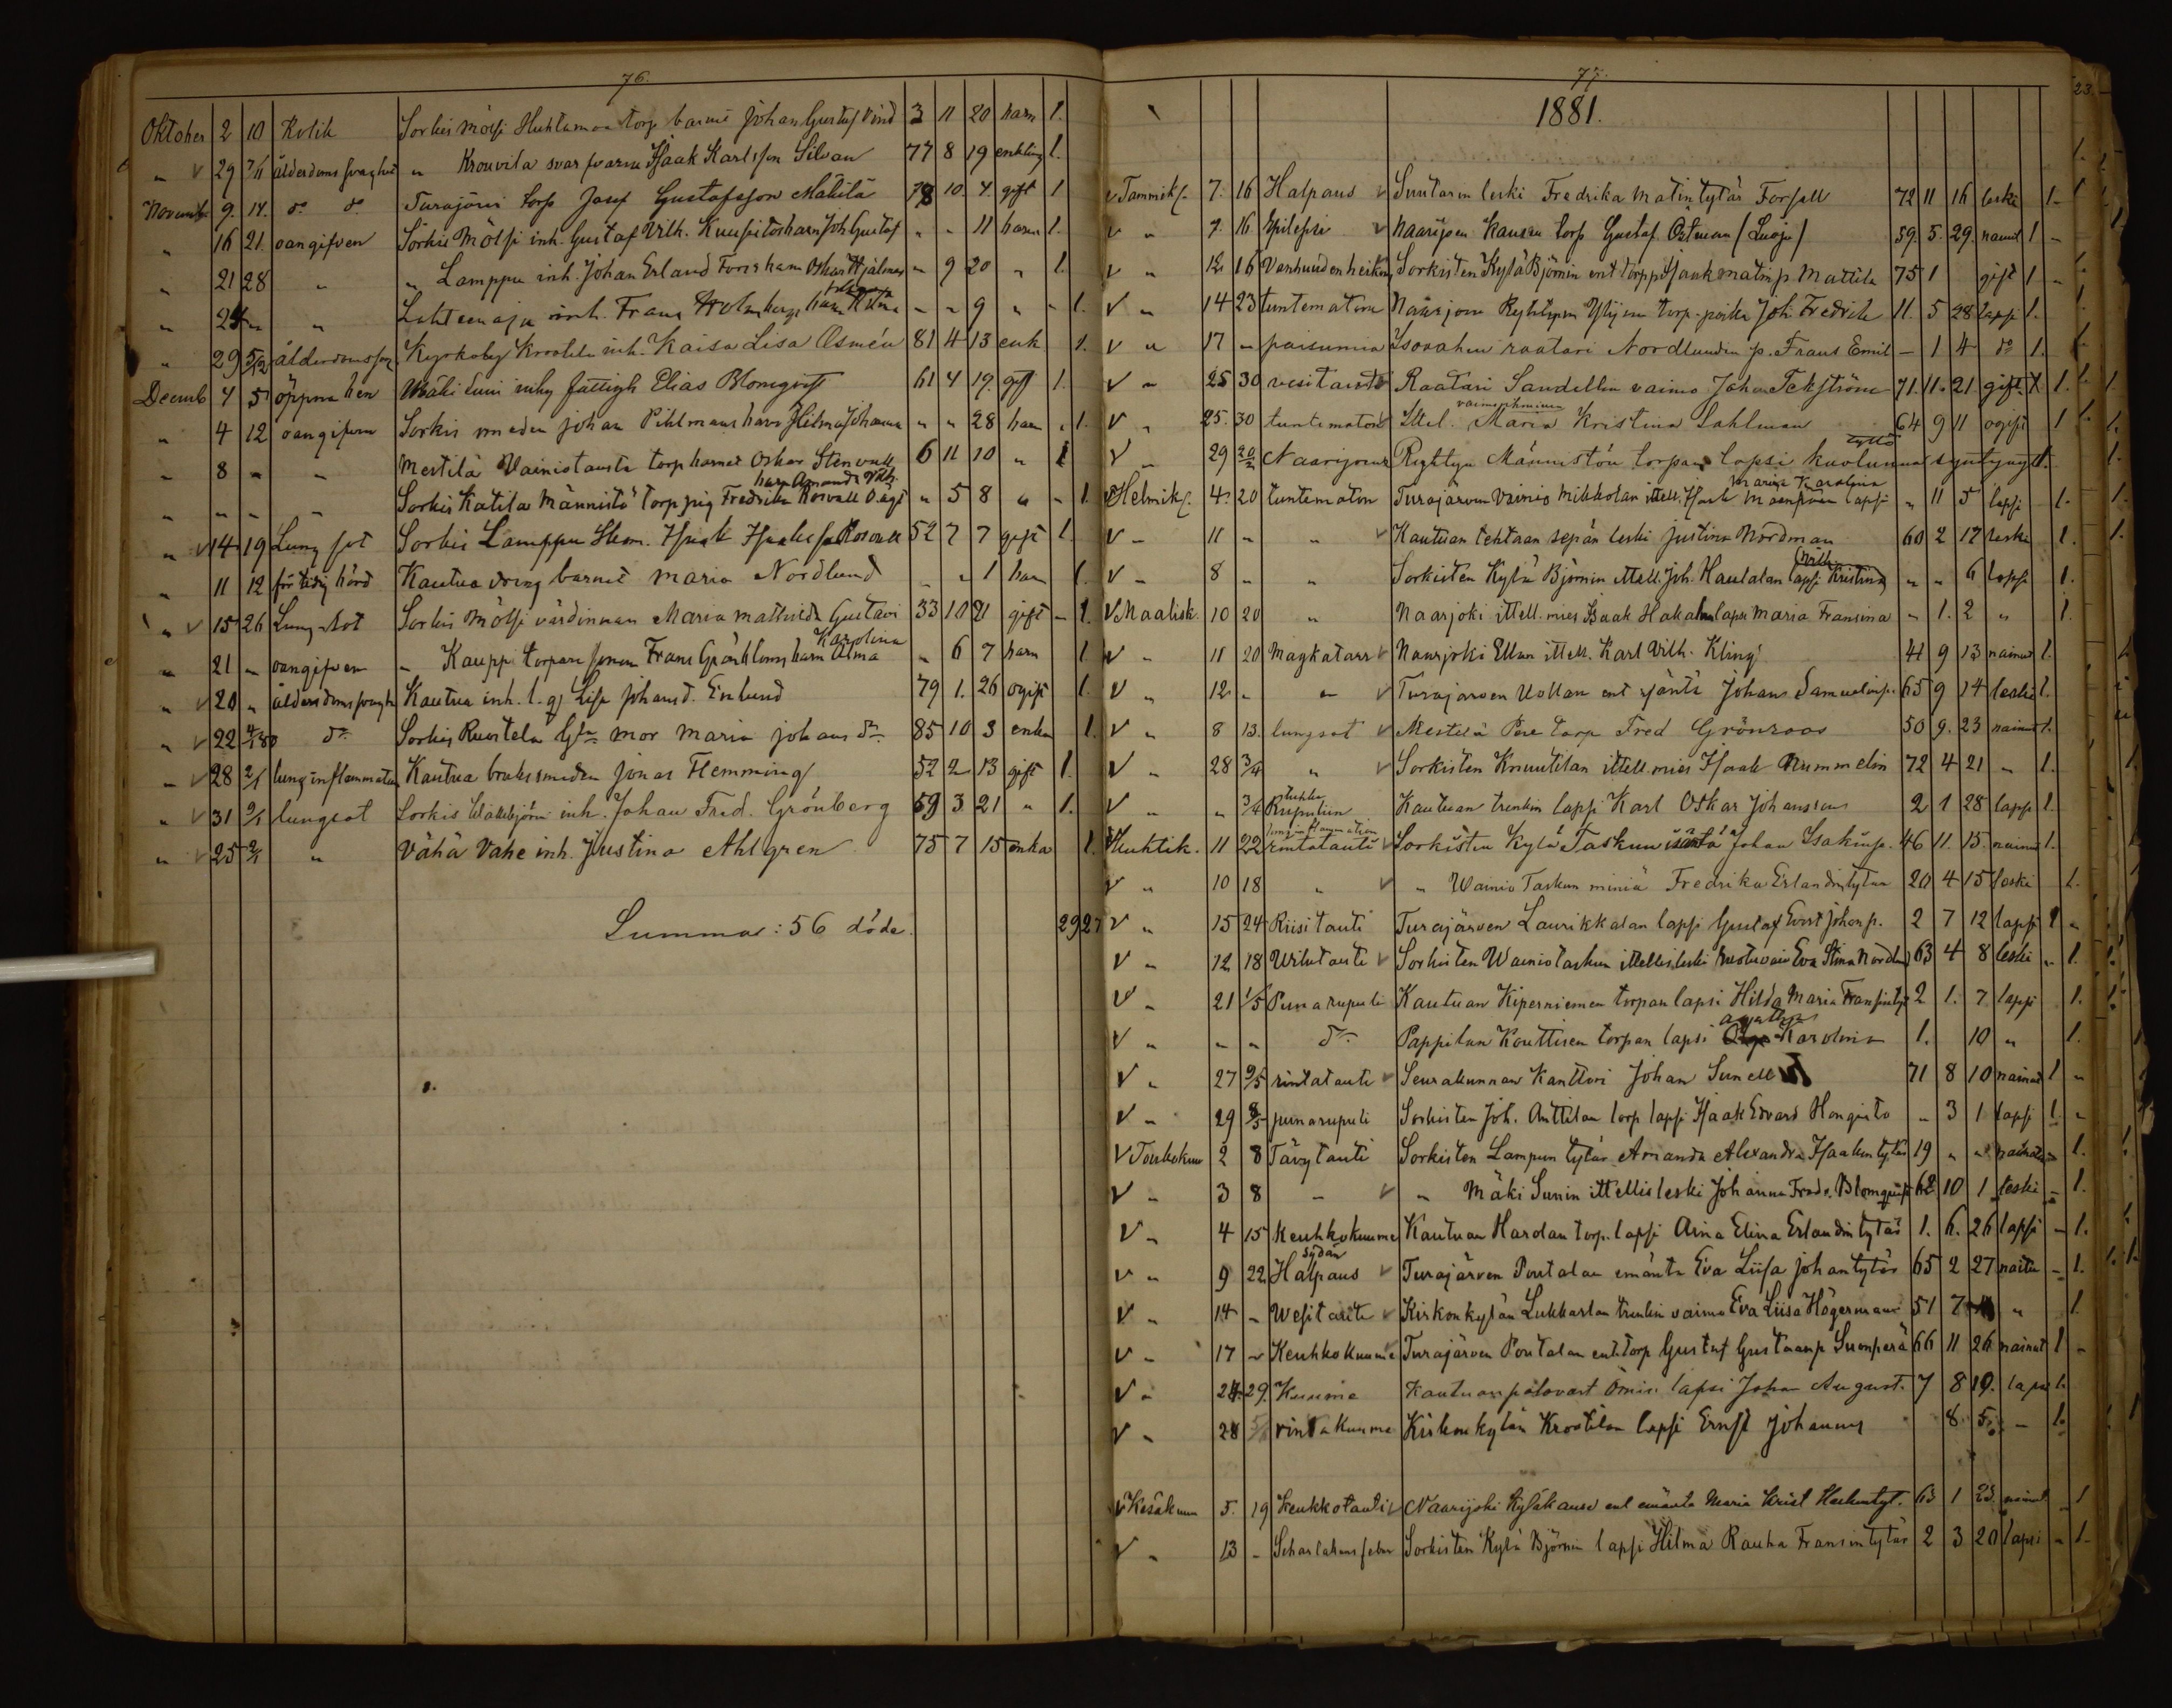 76.
Oktober 2 10 Kolik Sorkis Mölsi Huhtamaa torp barnet Johan Gustaf Vind 3 11 20 barn 1.
" 29 7/11 ålderdoms svaghet " Krouvila svarfvaren Isaak Karlsson Silvan 77 8 19 enkling 1.
Novemb. 9. 14. do do Turajärvi torp Josef Gustafsson Mäkilä 78 10. 4. gift 1
" 16 21. oangifven Sorkis Mölsi inh. Gustaf Vilh. Kuusistos barn Joh Gustaf " - 11 barn 1.
" 21 28 " " Lamppu inh. Johan Erland Fors barn Oskar Hjalmar - 9 20 " 1.
" 24 " " Lehteenoja inh. Frans Holmbergs barn - - 9 " " 1.
" 29 5/12 ålderdomssv Kyrkoby Kroatila inh. Kaisa Lisa Osmén 81 4 13 enk 1.
Decemb 4 5 öppna ben Mäki Suni inhy fattigh Elias Blomqvist 61 4 19. gift 1.
" 4 12 oangifven Sorkis smeden Johan Pihlmans barn Hilma Johanna " " 28 barn . 1.
" 8 - - Mestilä Vainiotausta torp barnet Oskar Stenvall 6 11 10 " 1
" - - - Sorkis Katila Männistö torp pig Fredrika Rosvall Oägt " 5 8 " - 1.
barn Amanda Vilh.
" 14 19 Lung sot Sorkis Lamppu Hem. Isaak Isaksson Rosvall 52 7 7 gift 1.
" 11 12 för tidig börd Kautua dräng barnet Maria Nordlund - " 1 barn 1.
" 15 26 Lung sot Sorkis Mölsi värdinnan Maria Mathilda Gustavi 33 10 21 gift - 1.
" 21 - oangifven " Kauppi torpare sonen Frans Grönbloms barn Alma " 6 7 barn 1
Karolina
" 20 " ålderdoms svaghe Kautua inh. l. qv Lisa Johansd. Enlund 79 1. 26 ogift 1.
" 22 4/1 80 do Sorkis Ruustela Gla mor Maria Johans dr 85 10 3 enka 1.
- 28 2/1 lunginflammation Kautua bruks smeden Jonas Flemming 52 2 13 gift 1.
" 31 9/1 lungsot Sorkis Wallbjörni inh. Johan Fred. Grönberg 69 3 21 " 1.
" 25 2/1 " Vähä Vahe inh. Justina Ahlgren 75 7 15 enka 1.
Summa: 56 döda. 29 27
77.
1881.
23.
Tammik. 7. 16 Halpaus Suutarin leski Fredrika Matintytär Forsell 72 11 16 leski 1-
" 7. 16 Epilepsi Naarijoen Kansan torp Gustaf Ostman (Luoja) 59. 5. 29. nainut 1 -
" 12 16 Vanhuuden heikk Sorkisten Kylä Björnin ent torppa Isaak Matinp. Mattila 75 1 gift 1 -
" 14 23 tuntematon Naarjoen Ryhtyn Ylijoen torp. poika Joh. Fredrik 11. 5 28 lapsi 1.
" 17 - paisumia Isovahen raatari Nordlundin p. Frans Emil - 1 4 do 1.
" 25 30 vesitauti Raatari Sandellin vaimo Johan Tekström 71. 11. 21 gift 1.
" 25. 30 tuntematon Ittel. Maria Kristina Sahlman 64 9 11 ogift 1
vaimoihminen
" 29 20/2 Naarjoen Ryhtyn Männistön torpan lapsi kuolunna syntynyt 1.
tyttö
Helmik. 4. 20 tuntematon Turajärven Vainio Mikkolan ittell. Isaak Mäenpään lapsi " 11 5 lapsi 1.
Maria Karolina
" 11 - " Kautuan tehtaan sepän leski Justina Nordman 60 2 17 leski 1.
" 8 - " Sorkisten Kylä Björnin ittell. Joh. Haulalan lapsi Kristina " " 6 lapsi 1.
Vilh.
Maalisk. 10 20 " Naarjoki ittell. mies Isaak Hakalan lapsi Maria Fransina - 1. 2 " 1.
" 11 20 Magkatarr Naarjoki Ellan ittell. Karl Vilh. Kling 44 9 13 nainut 1.
" 12 - - Turajärven Uollan ent isäntä Johan Samuelinp. 65 9 14 leski 1.
" 8 13. lungsot Mestilä Pere torp Fred Grönroos 50 9. 23 nainut 1.
" 28 3/4 " Sorkisten Knuutilan ittell. mies Isaak Nummelin 72 4 21 " 1.
" " 3/4 tuhka Rupuliin Kautuan trenkin lapsi Karl Oskar Johansson 2 1 28 lapsi 1.
lunginflammation
Huhtik. 11 22 rintatauti Sorkisten Kylä Taskun isäntä Johan Isakinp. 46 11. 15. nainut 1.
" 10 18 " " Wainio Taskun miniä Fredrika Erlandintytär 20 4 15 leski 1.
" 15 24 Riisitauti Turajärven Laurikkalan lapsi Gustaf Evert Johanp. 2 7 12 lapsi 1 "
" 12 18 Wilutauti Sorkisten Wainiotaskun ittellis leski Eva Stina Nordlund 63 4 8 leski " 1.
" 21 1/5 Punarupuli Kautuan Kiperniemen torpan lapsi Hilda Maria Fransintyt 2 1. 7 lapsi 1.
" - - do Pappilan Kouttisen torpan lapsi Karolina 1. 10 " 1.
agatha
" 27 9/5 rintatauti Seurakunnan Kanttori Johan Sunell 71 8 10 nainut 1 "
" 29 8/5 punarupuli Sorkisten Joh. Anttilan torp lapsi Isaak Edvard Hongisto " 3 1 lapsi 1 -
Toukokuu 2 8 Tävytauti Sorkisten Lampun tytär Amanda Alexandra Isaakintytär 19 " " naimaton 1.
" 3 8 - " Mäki Sunin ittellis leski Johanna Fredr. Blomqvist 62 10 1 leski - 1.
" 4 15 Keuhkokuume Kautuan Harolan torp. lapsi Aina Elina Erlandintytär 1. 6. 26 lapsi - 1.
sydän
" 9 22. Halpaus Turajärven Poutalan emäntä Eva Liisa Johantytär 65 2 27 naitu - 1.
" 14 - Wesitauti Kirkonkylän Lukkarlan trenkin vaimo Eva Liisa Högerman 51 7 " 1.
" 17 - Keuhkokuume Turajärven Poutalan ent. torp Gustaf Gustaanp Suonperä 66 11 26 nainut 1 -
" 24. 29. Kuume Kautuan palovart Ömin lapsi Johan August. 7 8 19. lapsi 1.
" 28 rintakuume Kirkonkylän Kroatilan lapsi Ernst Johannes 8 5. - 1.
Kesäkuu 5. 19 Keuhkotauti Naarijoki Kyläkansa ent emäntä Maria Krist Heikintyt. 63 1 23. nainut 1
" 13 - Scharlakansfeber Sorkisten Kylä Björnin lapsi Hilma Rauha Fransintytär 2 3 20 lapsi - 1-